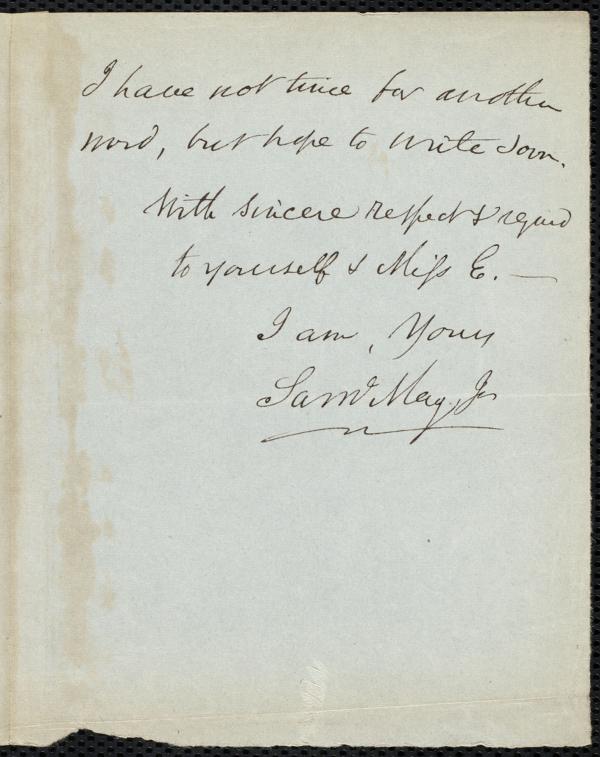 I have not time for another
word, but hope to write soon.
With sincere respect & regard
to yourself & Miss E. —
I am, Yours
Saml May, Jr